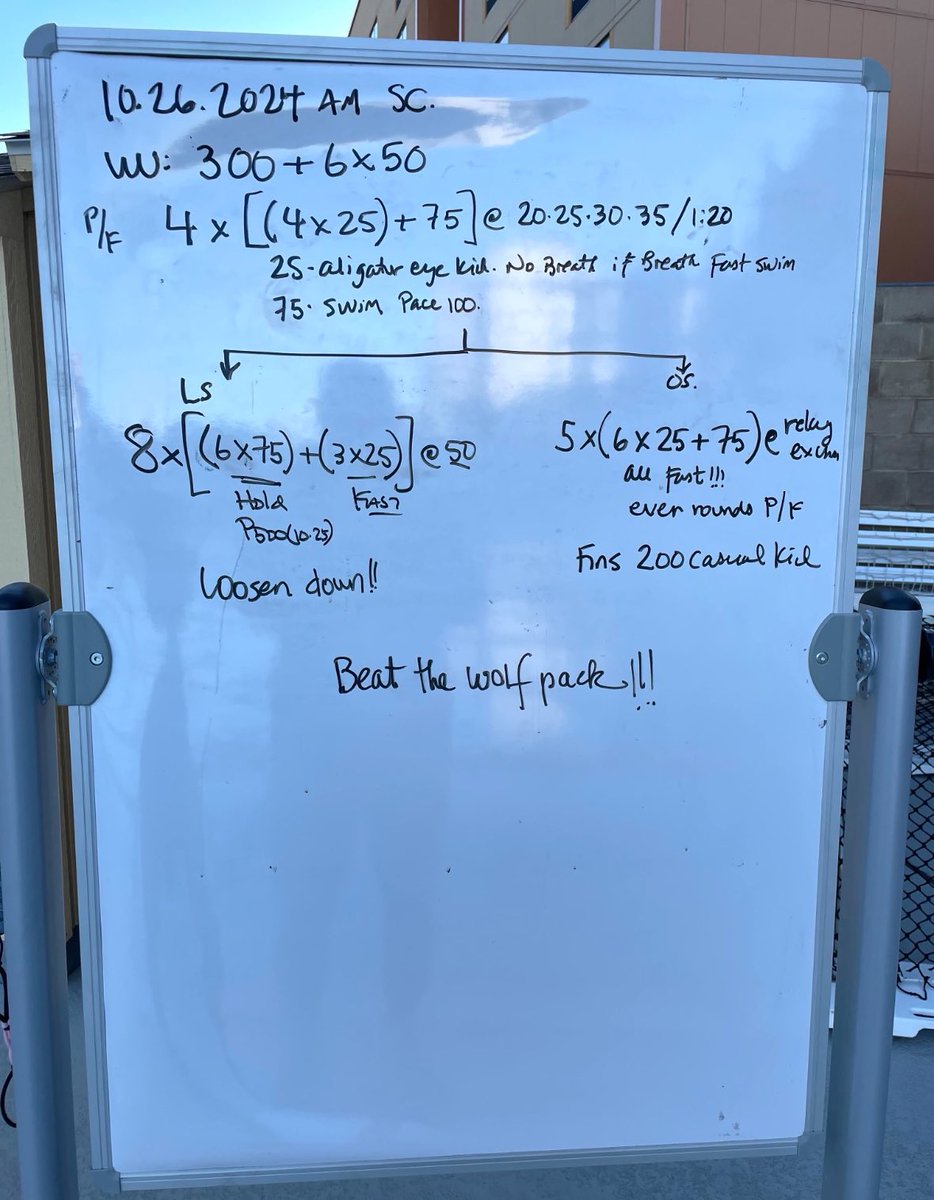 10.26.2024 AM SC.
WU: 300+6x50
P/F 4x[(4x25)+75]@ 20.25.30.35/1:20
25-aligatur eye kick. No Breath if Breath Fast swim
75. swim Pace 100.
LS
8x[(6x75)+(3x25)]@50
Hold FAST
P500(10.25)
Loosen down!!
OS.
5x(6x25+75)@ relay
exchn
all fast!!!
ever rounds P/F
Fins 200 casual kick
Beat the wolf pack!!!